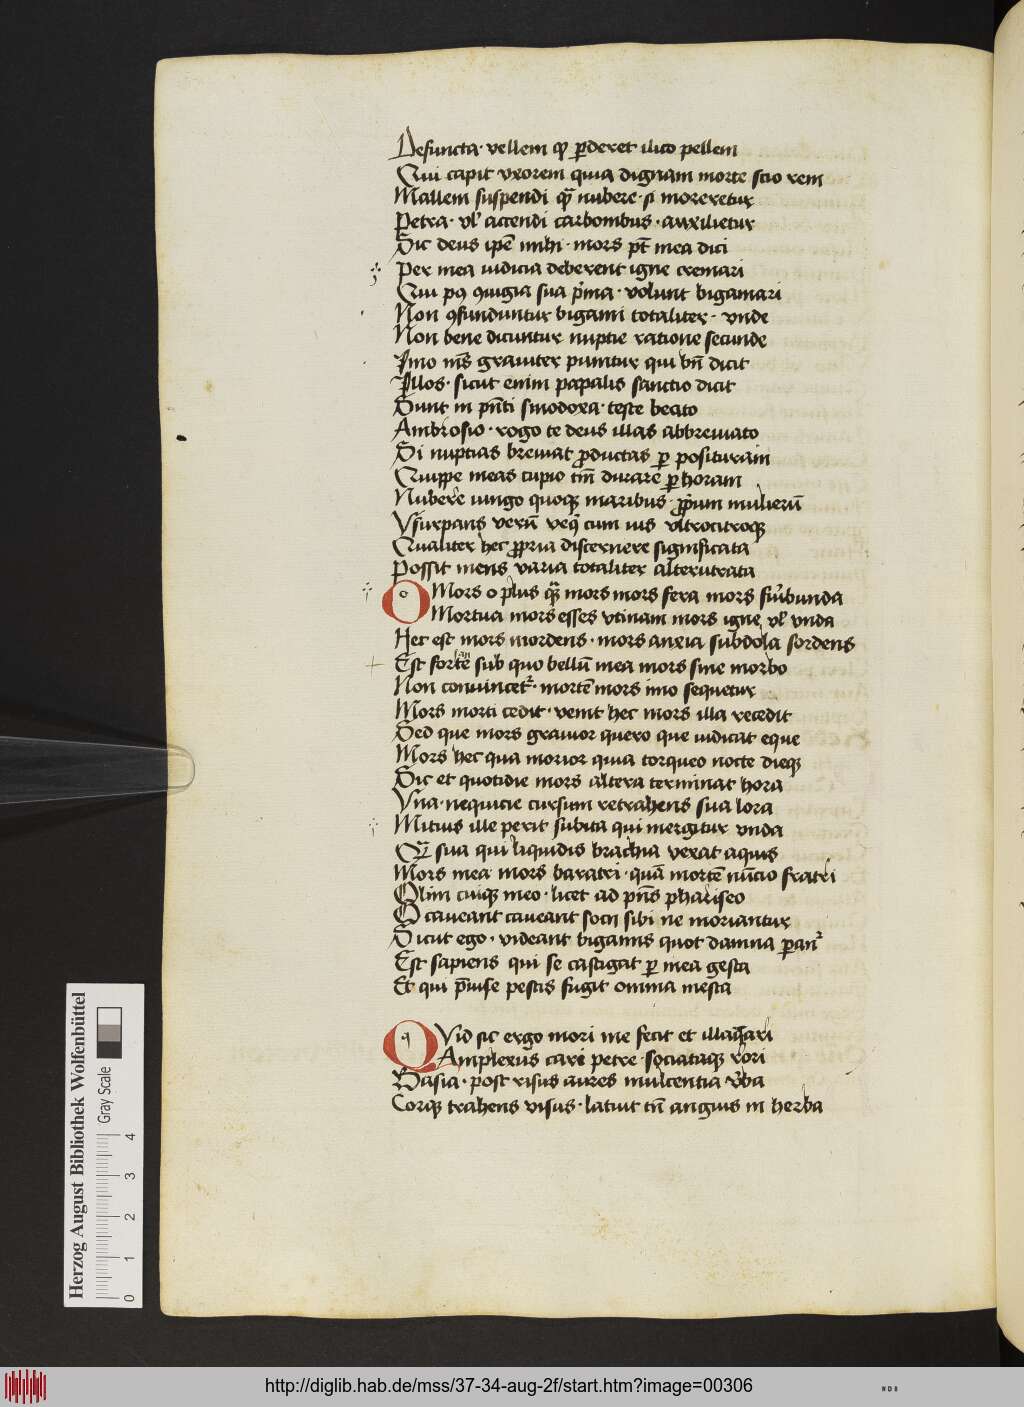 Defuncta · vellem qͥ ꝑderet ilico pellem
Qui capit vxorem quia dignam morte scio rem
Mallem suspendi qͣ nubere · si moreretur
Petra · vl' accendi carbombus · auxilietur
Sic deus ip̄e mihi · mors pt̄ mea dici
Per mea iudicia deberent igne cremari
Qui pꝰ ꝯiugia sua p̄ma · volunt bigamari
Non ꝯfunduntur bigami totaliter · vnde
Non bene dicuntur nuptie ratione secunde
Imo mꝭ grauiter punitur qui bn̄ dicit
Illos · sicut enim papalis sanctio dicit
Sunt in pn̄ti sinodoxa · teste beato
Ambrosio · rogo te deus illas abbreuiato
Si nuptias breuiat ꝓductas ꝑ posituram
Quippe meas cupio tm̄ durare ꝑ horam
Nubere iungo quoqꝫ maribus · ꝓp̄um mulierū
Vsurpans verū veqꝫ cum uis vltrocitroqꝫ
Qualiter hec ꝓpria discernere significata
Possit mens varia totaliter alterutrata
O Mors o plus qͣ mors mors fera mors furibunda
Mortua mors esses vtinam mors igne vl' vnda
Hec est mors mordens · mors anxia subdola sordens
Est forte sub quo bellū mea mors sine morbo
Non conuincet᷑ · mortē mors imo sequetur
Mors morti cedit · venit hec mors illa recedit
Sed que mors grauior quero que iudicat eque
Mors hec qua morior quia torqueo nocte dieqꝫ
Sic et quotidie mors altera terminat hora
Vna · nequicie cursum retrahens sua lora
Mitius ille perit subita qui mergitur vnda
Qͣ sua qui liquidis brachia vexat aquis
Mors mea mors baratri · quā mortē nūcio fratri
Olim cuiqꝫ meo · licet ad pn̄s phariseo
O caueant caueant socii sibi ne moriantur
Sicut ego · videant bigamis quot damna ꝑan᷑
Est sapiens qui se castigat ꝑ mea gesta
Et qui p̄uise pestis fugit omnia mesta
QVid sic ergo mori me fecit et illaq̄ari
Amplexus cari petre · sociataqꝫ rori
Basia · post risus aures mulcentia v̄ba
Corqꝫ trahens visus · latuit tn̄ anguis in herba
Herzog August Bibliothek Wolfenbüttel
Gray Scale
0 1 2 3 4
http://diglib.hab.de/mss/37-34-aug-2f/start.htm?image=00306